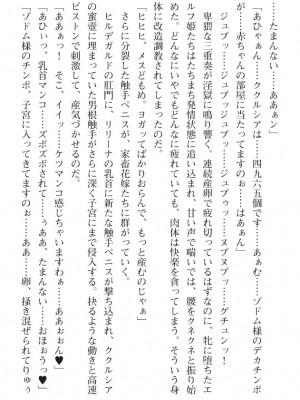 ……たまんない……ああぁン」
「あひゃぁん……ククルシアは……四九六個です……あぁむ……ゾドム様のデカチンポ
が……赤ちゃんの部屋に当たってますのぉ……はぁん」
ジュプッ……ジュプジュプッ……ジュプゥッ……ヌプヌプッ……グチュンッ！
卑猥な三重奏が淫獄に鳴り響く。連続産卵で疲れているはずなのに、牝に堕ちたエ
ルフ姫たちはたちまち発情状態に追い込まれ、甘い声で喘いでは、腰をクネクネと振り始
めた。どんなにいやでもどんなに疲れていても、肉体は快楽を貪ってしまう。そういう身
体に改造調教されてしまったのだ。
「ヒヒヒ、メスどもめ。ヨガッてばかりおらんで、もっと産むのじゃぁ」
さらに分裂した触手ペニスが、家畜花嫁たちに群がっていく。
ヒルデガルドの肛門に、リリーナの乳首に新たな触手ペニスが撃ち込まれ、ククルシア
の蜜壺に埋まっていた男根触手がさらに深く子宮にまで侵入する。抉るような動きと高速
ピストンで刺激して、産気づかせるのだ。
「ああぁっ！　そこ、イイッ……ケツマンコ感じちゃいますわぁ……ああぉおん♥」
「あひいっ、乳首マンコ……ズボズボされて……うぁあ、たまんない……おほぉうっ♥」
「ゾドム様のチンポ、子宮に入ってきてますのぉ……あぁ……卵、掻き混ぜられてりゅぅ